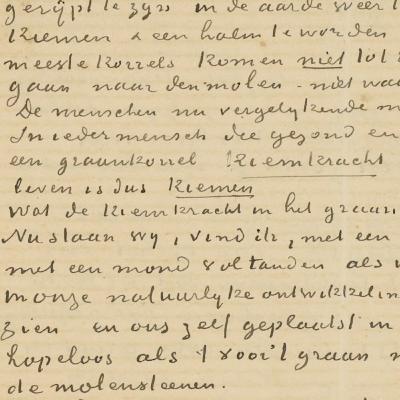 gerypt te zyn in de aarde weer t
kiemen & een halm te worden
meeste korrels komen niet tot
gaan naar den molen - niet waa
De menschen nu vergelykende m
In ieder mensch die gezond en
een graankorrel kiemkracht
leven is dus kiemen
Wat de kiemkracht in het graan
Nu staan wy, vind ik, met een
met een mond vol tanden als
in onze natuurlyke ontwikkelin
zien en ons zelf geplaatst in
hopeloos als 't voor 't graan
de molensteenen.